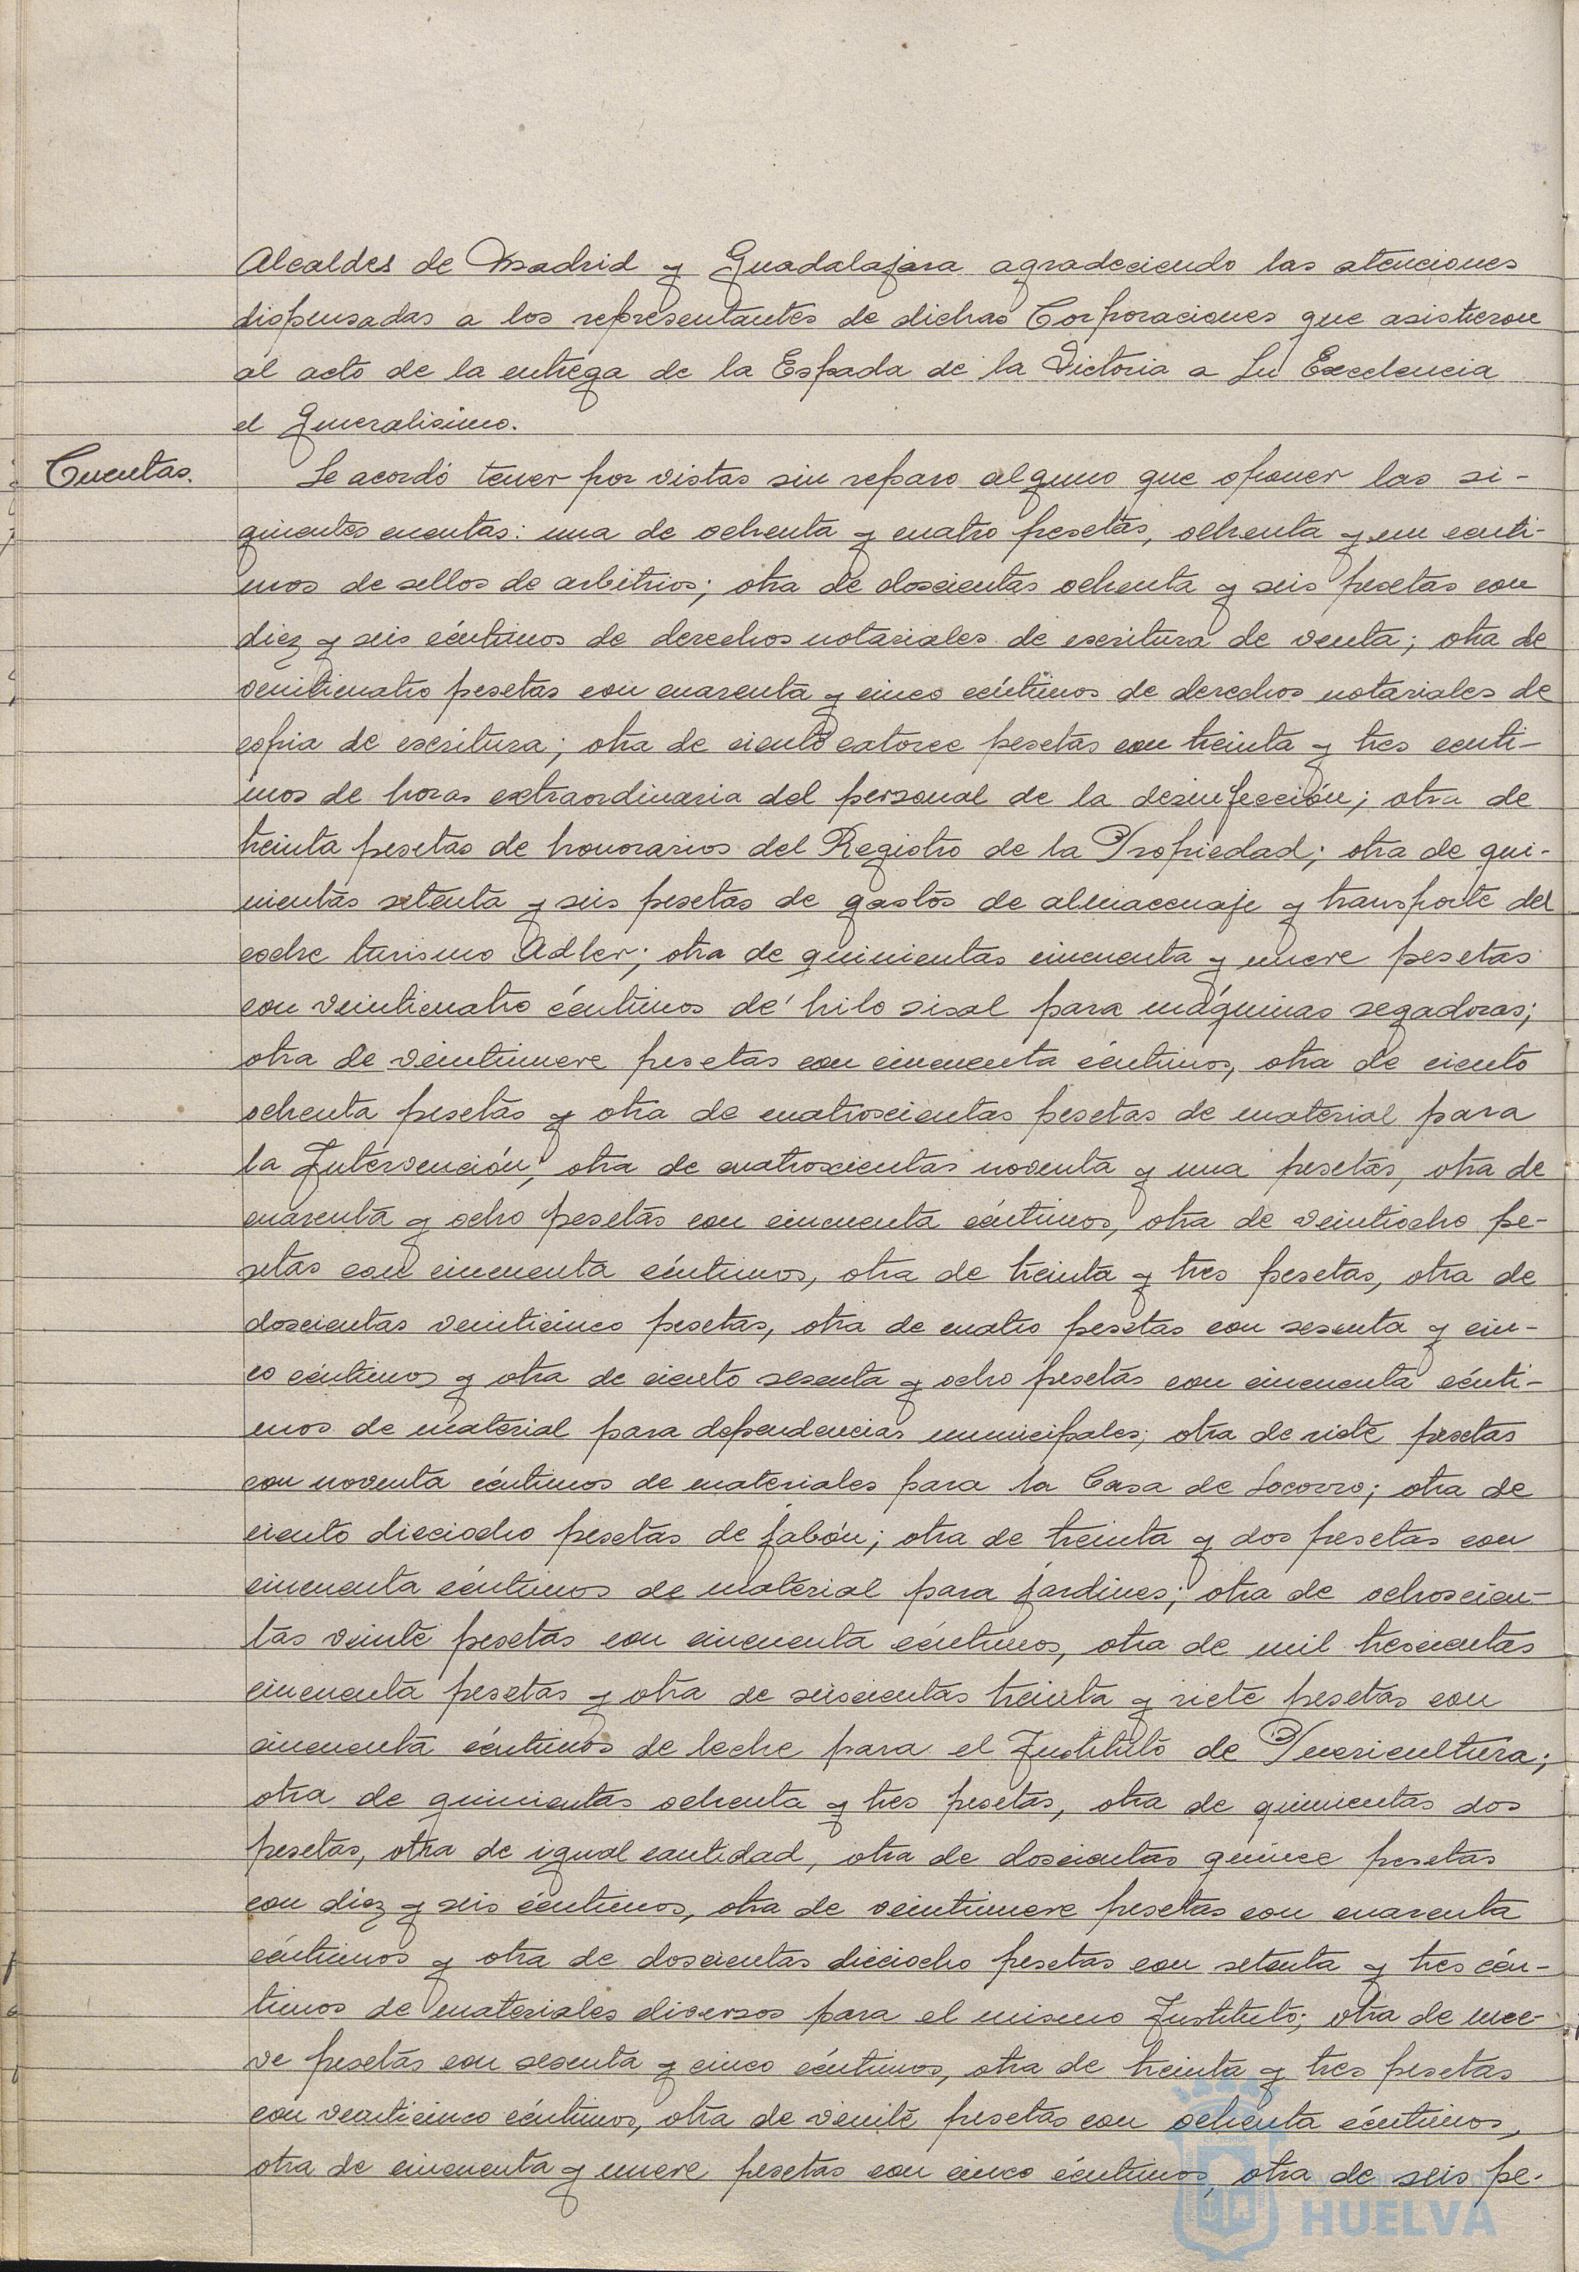 Alcaldes de Madrid y Guadalajara agradeciendo las atenciones
dispensadas a los representantes de dichas Corporaciones que asistieron
al acto de la entrega de la Espada de la Victoria a Su Excelencia
el Generalisimo.
Cuentas.
Se acordó tener por vistas sin reparo alguno que oponer las si-
guientes cuentas: una de ochenta y cuatro pesetas, ochenta y un centi-
mos de sellos de arbitrios; otra de doscientas ochenta y seis pesetas con
diez y seis céntimos de derechos notariales de escritura de venta; otra de
veinticuatro pesetas con cuarenta y cinco céntimos de derechos notariales de
copia de escritura; otra de ciento catorce pesetas con treinta y tres centi-
mos de horas extraordinaria del personal de la desinfección; otra de
treinta pesetas de honorarios del Registro de la Propiedad; otra de qui-
nientas setenta y seis pesetas de gastos de almacenaje y transporte del
coche turismo Adler; otra de quinientas cincuenta y nueve pesetas
con veinticuatro céntimos de hilo sisal para máquinas segadoras;
otra de veintinueve pesetas con cincuenta céntimos, otra de ciento
ochenta pesetas y otra de cuatroscientas pesetas de material para
la Intervención; otra de cuatroscientas noventa y una pesetas, otra de
cuarenta y ocho pesetas con cincuenta céntimos, otra de veintiocho pe-
setas con cincuenta céntimos, otra de treinta y tres pesetas, otra de
doscientas veinticinco pesetas, otra de cuatro pesetas con sesenta y cin-
co céntimos y otra de ciento sesenta y ocho pesetas con cincuenta cénti-
mos de material para dependencias municipales; otra de siete pesetas
con noventa céntimos de materiales para la Casa de Socorro; otra de
ciento dieciocho pesetas de jabón; otra de treinta y dos pesetas con
cincuenta céntimos de material para jardines; otra de ochoscien-
tas veinte pesetas con cincuenta céntimos, otra de mil trescientas
cincuenta pesetas y otra de seiscientas treinta y siete pesetas con
cincuenta céntimos de leche para el Instituto de Puericultura;
otra de quinientas ochenta y tres pesetas, otra de quinientas dos
pesetas, otra de igual cantidad, otra de doscientas quince pesetas
con diez y seis céntimos, otra de veintinueve pesetas con cuarenta
céntimos y otra de doscientas dieciocho pesetas con setenta y tres cén-
timos de materiales diversos para el mismo Instituto; otra de nue-
ve pesetas con sesenta y cinco céntimos, otra de treinta y tres pesetas
con veinticinco céntimos, otra de veinte pesetas con ochenta céntimos,
otra de cincuenta y nueve pesetas con cinco céntimos, otra de seis pe-
HUELVA